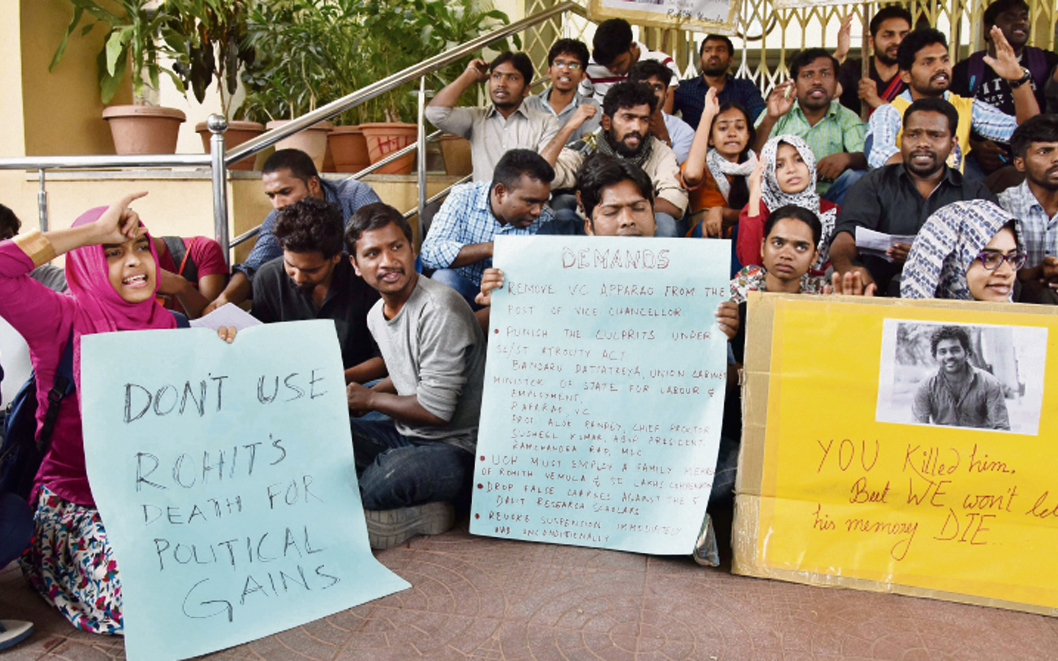 DON'T USE
ROHIT'S
DEATH FOR
POLITICAL
GAINS
DEMANDS
REMOVE VC APPARAO FROM THE
POST OF VICE CHANCELLOR
• PUNISH THE CULPRITS UNDER
SC/ST ATROCITY ACT
BANDARU DATTATREYA, UNION CABINET
MINISTER OF STATE FOR LABOUR &
EMPLOYMENT,
P. APPARAO, VC
PROF ALOK PANDEY, CHIEF PROCTOR
SUSHEEL KUMAR, ABVP PRESIDENT
RAMCHANDRA RAO, MLC
• UOH MUST EMPLOY A FAMILY MEMBER
OF ROHITH VEMULA & 50 LAKHS
• DROP FALSE CASES AGAINST THE 5
DALIT RESEARCH SCHOLARS
• REVOKE SUSPENSION IMMEDIATELY
AND UNCONDITIONALLY
YOU Killed him.
But WE won't let
his memory DIE...